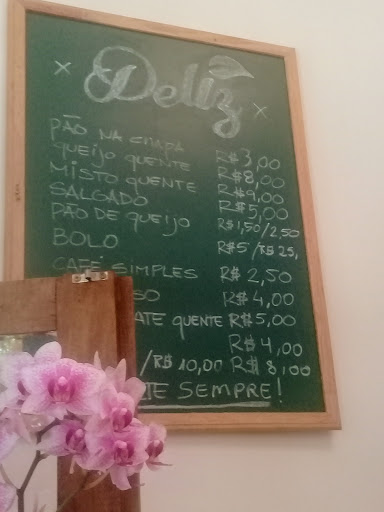 x Deliz x
PÃO NA CHAPA R$ 3,00
QUEIJO QUENTE R$ 8,00
MISTO QUENTE R$ 9,00
SALGADO R$ 5,00
PÃO DE QUEIJO R$ 1,50/2,50
BOLO R$5 / R$ 25,
CAFÉ SIMPLES R$ 2,50
SO R$ 4,00
ATE QUENTE R$ 5,00
R$ 4,00
/R$ 10,00 R$ 8,00
TE SEMPRE!